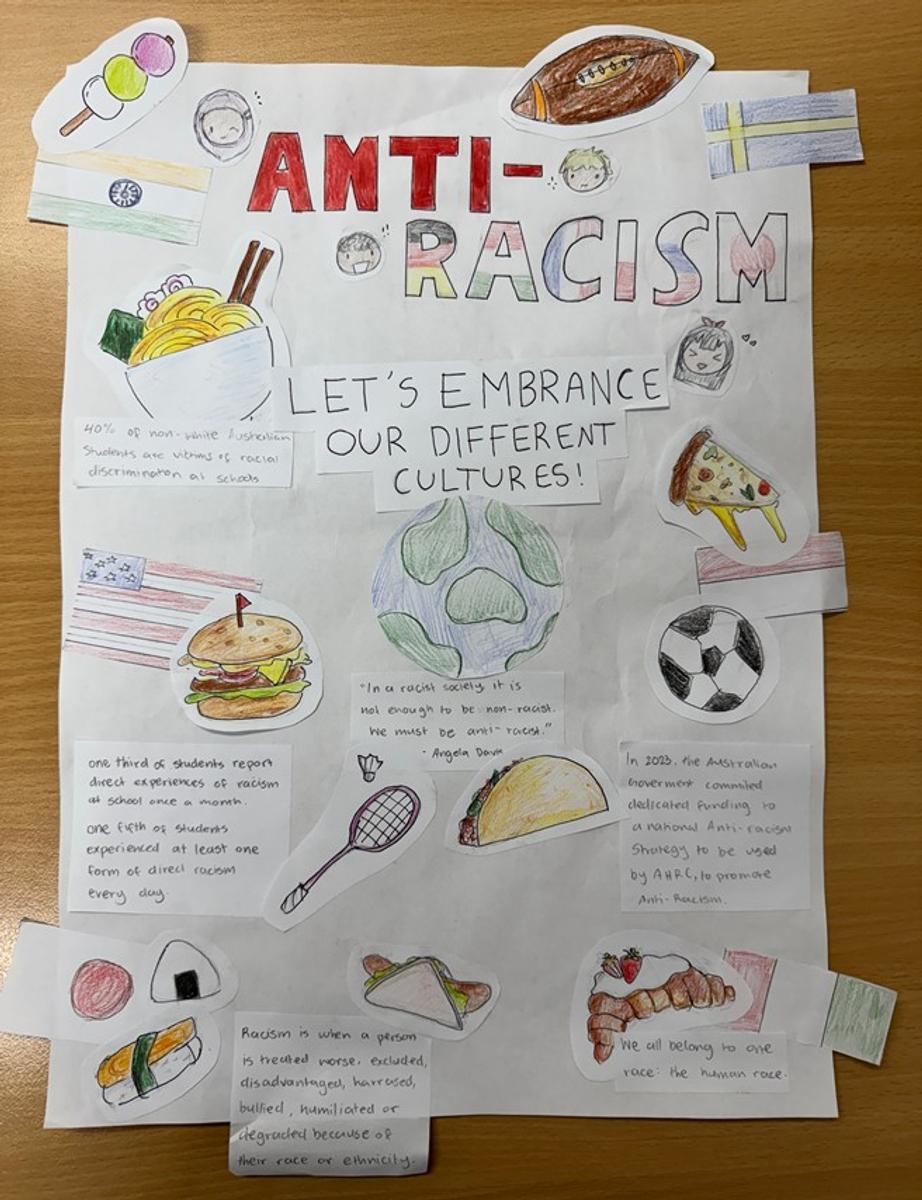 ANTI-
RACISM
LET'S EMBRANCE
OUR DIFFERENT
CULTURES!
40% of non-white Australian
Students are victims of racial
discriminaton at schools
"In a racist society it is
not enough to be non-racist.
We must be anti-racist."
- Angela Davis
one third of students report
direct experiences of racism
at school once a month.
one fifth of students
experienced at least one
form of direct racism
every day.
In 2023, the Australian
Goverment commited
dedicated funding to
a national Anti-racism
Strategy to be used
by AHRC, to promote
Anti-Racism.
Racism is when a person
is treated worse, excluded,
disadvantaged, harrased,
bullied, humiliated or
degraded because of
their race or ethnicity.
We all belong to one
race: the human race.